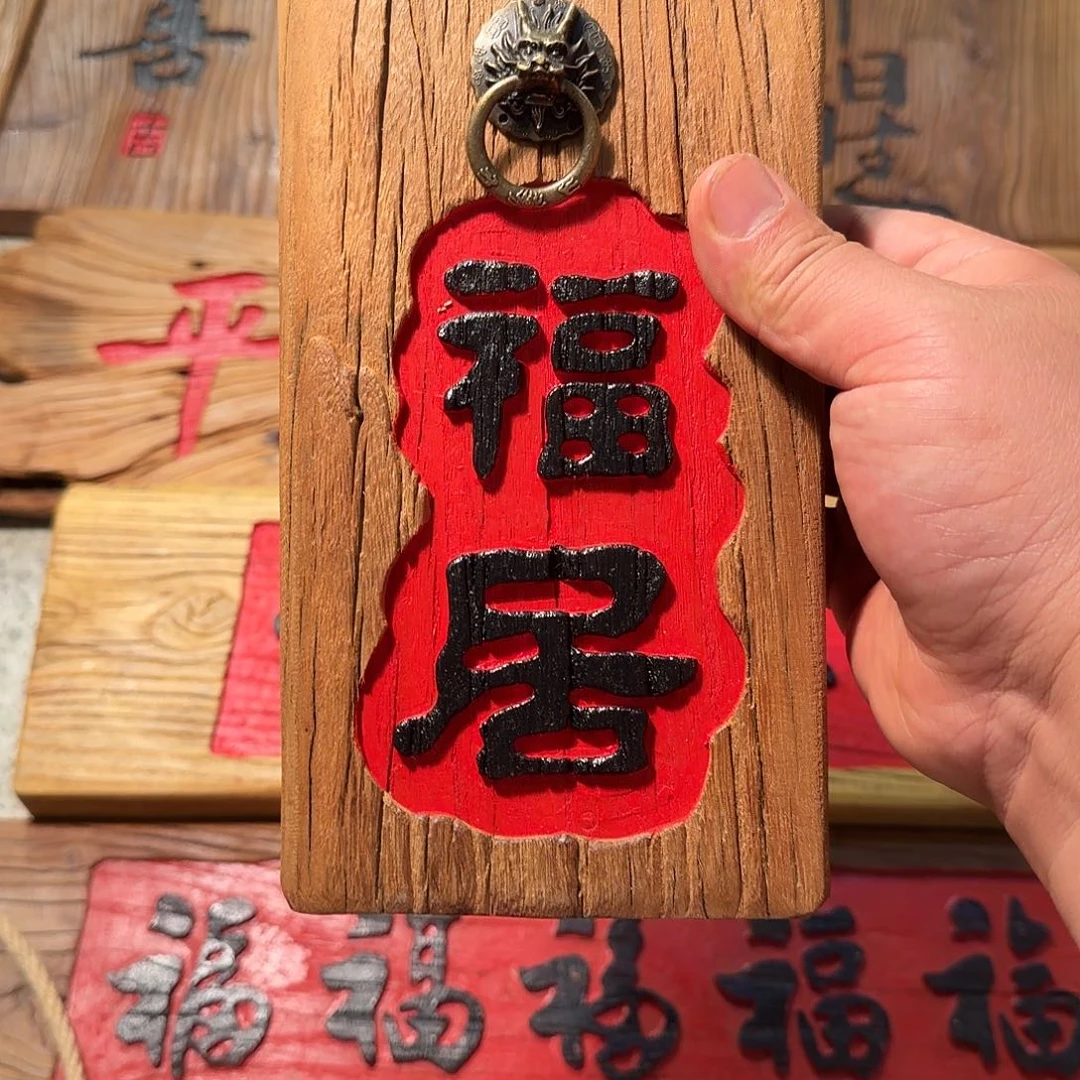 福
居
平
福福福福福